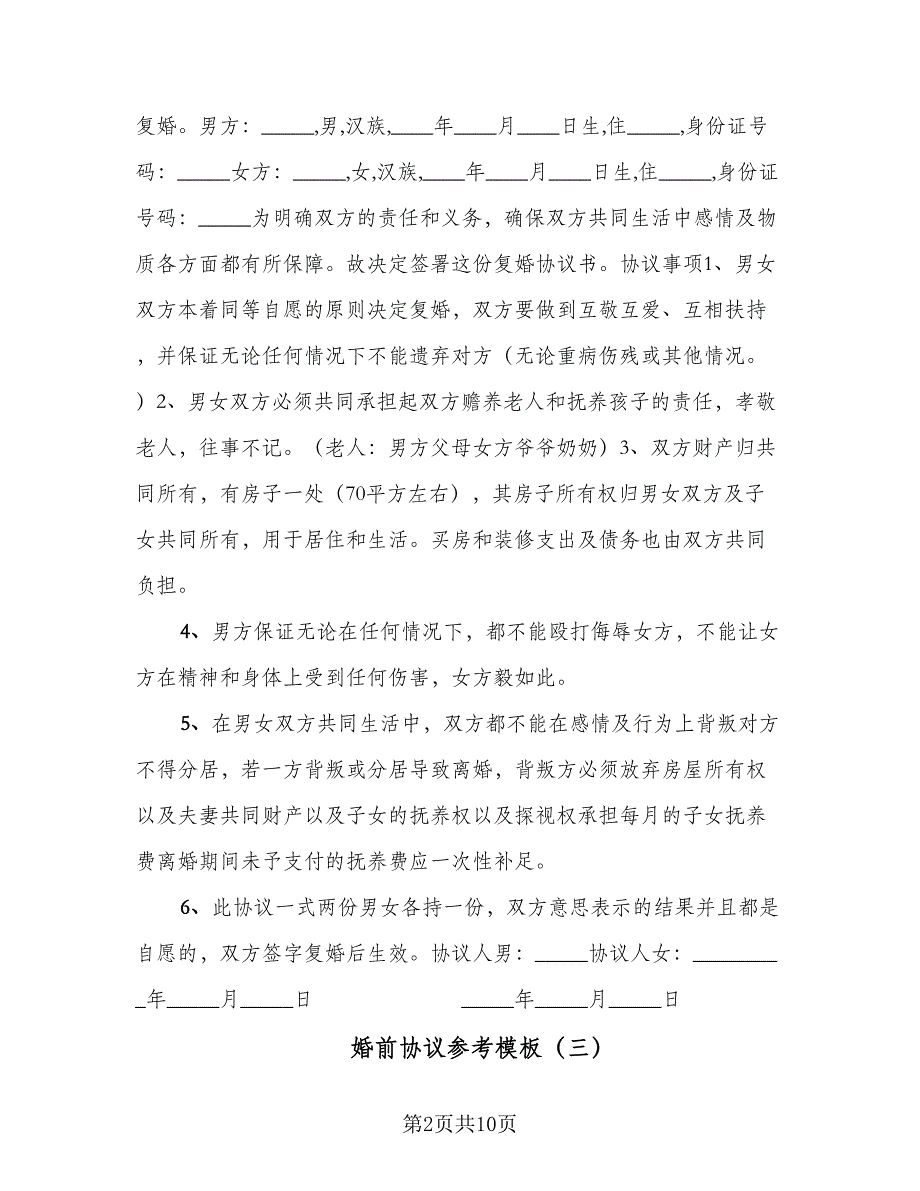 复婚。男方：_____,男,汉族,____年____月____日生,住_____,身份证号
码：_____女方：_____,女,汉族,____年____月____日生,住_____,身份证
号码：_____为明确双方的责任和义务，确保双方共同生活中感情及物
质各方面都有所保障。故决定签署这份复婚协议书。协议事项1、男女
双方本着同等自愿的原则决定复婚，双方要做到互敬互爱、互相扶持
，并保证无论任何情况下不能遗弃对方（无论重病伤残或其他情况。
）2、男女双方必须共同承担起双方赡养老人和抚养孩子的责任，孝敬
老人，往事不记。（老人：男方父母女方爷爷奶奶）3、双方财产归共
同所有，有房子一处（70平方左右），其房子所有权归男女双方及子
女共同所有，用于居住和生活。买房和装修支出及债务也由双方共同
负担。
4、男方保证无论在任何情况下，都不能殴打侮辱女方，不能让女
方在精神和身体上受到任何伤害，女方毅如此。
5、在男女双方共同生活中，双方都不能在感情及行为上背叛对方
不得分居，若一方背叛或分居导致离婚，背叛方必须放弃房屋所有权
以及夫妻共同财产以及子女的抚养权以及探视权承担每月的子女抚养
费离婚期间未予支付的抚养费应一次性补足。
6、此协议一式两份男女各持一份，双方意思表示的结果并且都是
自愿的，双方签字复婚后生效。协议人男：_____协议人女：________
_年_____月_____日 _____年_____月_____日
婚前协议参考模板（三）
第2页共10页